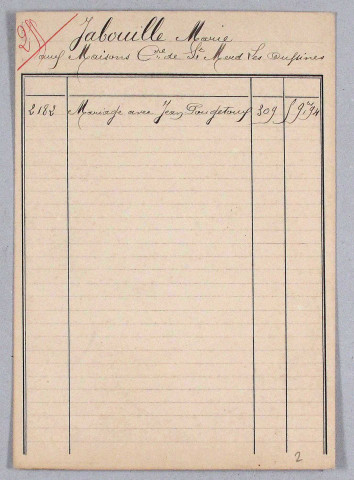 Jabouille Marie
aux Maisons Cne de St Merd Les Oussines
2182 Mariage avec Jean Pougetoux 309
2